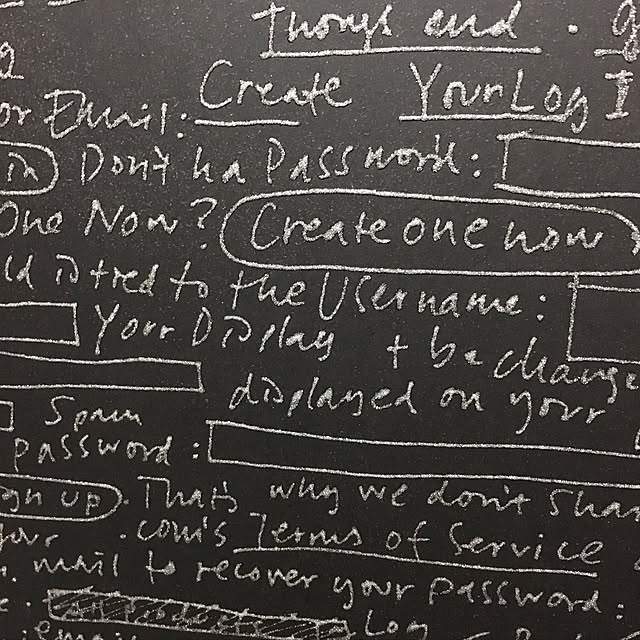 and . g
Create Your Log I
or Email:
in Don't ha Password:
One Now? Create one now
to the Username:
Your Display t be change
displayed on your
Spam
password:
gn up. That's why we don't shar
your .com's Terms of Service
. mail to recover your password:
Log
email